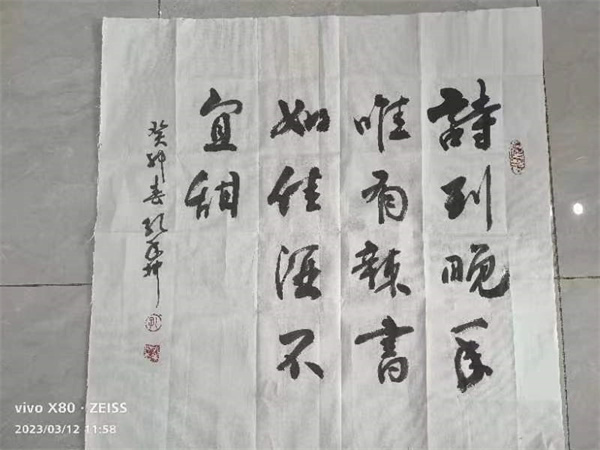 詩到晚年
唯有辣書
如佳酒不
宜甜
癸卯春
vivo X80 · ZEISS
2023/03/12 11:58